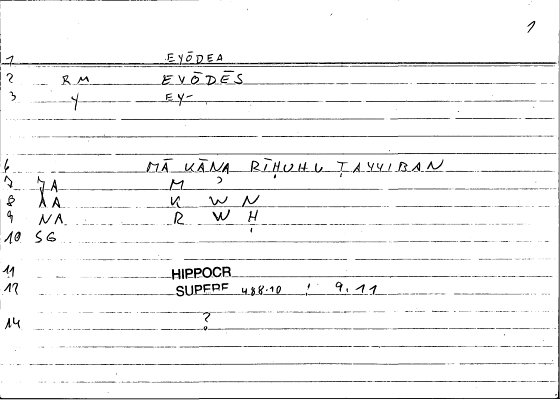 1
1 EYŌDEA
2 RM EYŌDĒS
3 Y EY-
6 MĀ KĀNA RĪḤUHU ṬAYYIBAN
7 JA M ʾ
8 AA K W N
9 NA R W Ḥ
10 SG
11 HIPPOCR
12 SUPERF 488.10 ; 9.11
14 ?